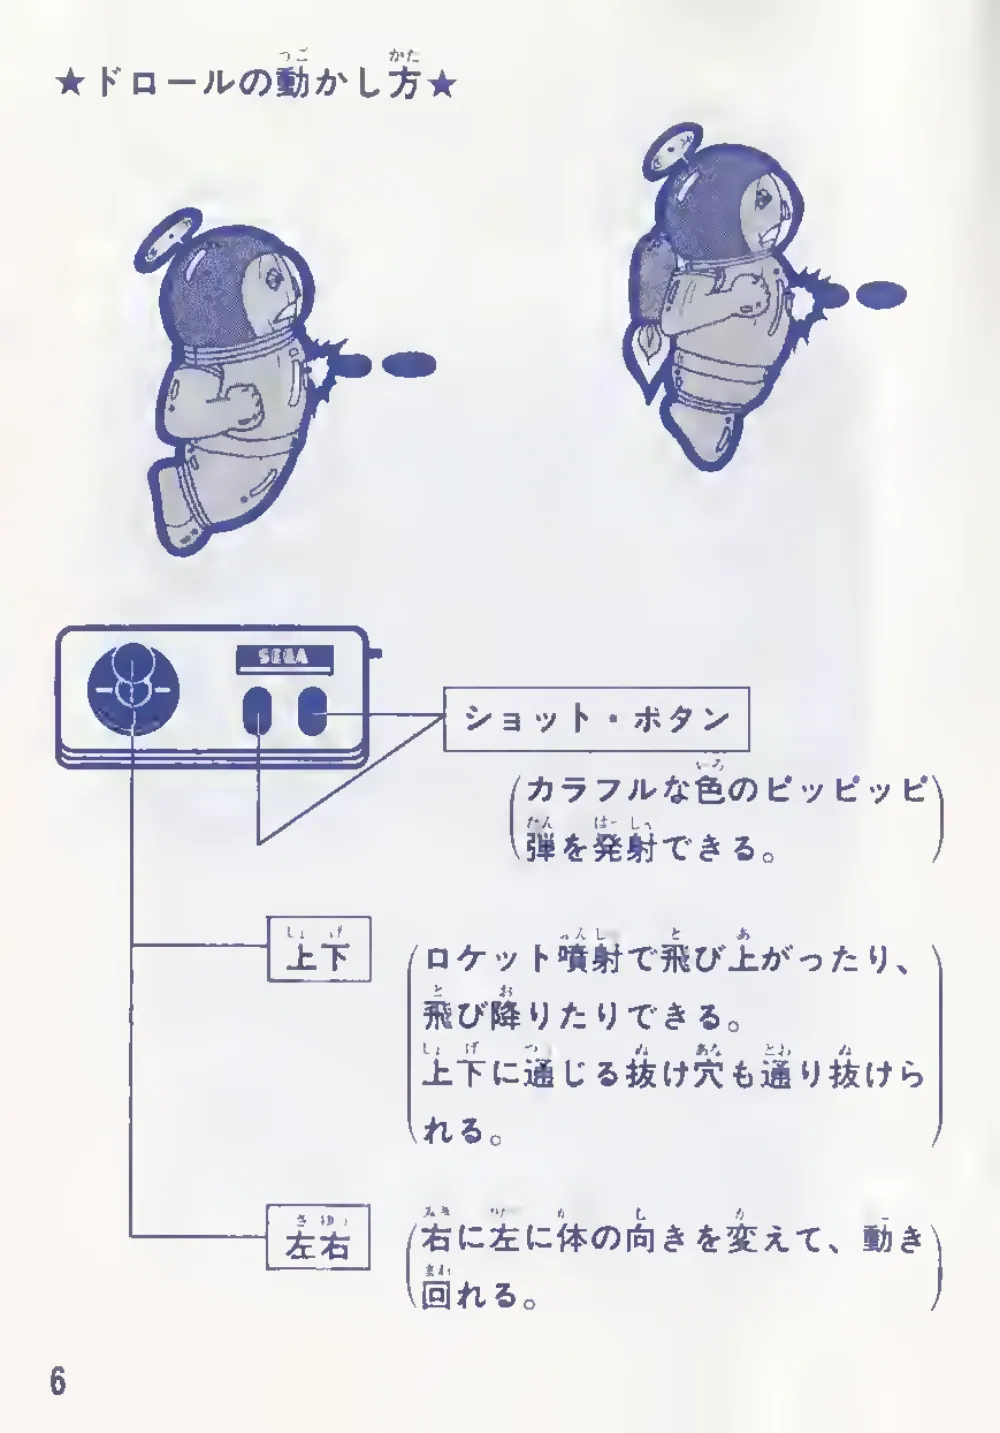 ★ドロールの動かし方★
SEGA
ショット・ボタン
カラフルな色のピッピッピ
弾を発射できる。
上下
ロケット噴射で飛び上がったり、
飛び降りたりできる。
上下に通じる抜け穴も通り抜けら
れる。
左右
右に左に体の向きを変えて、動き
回れる。
6